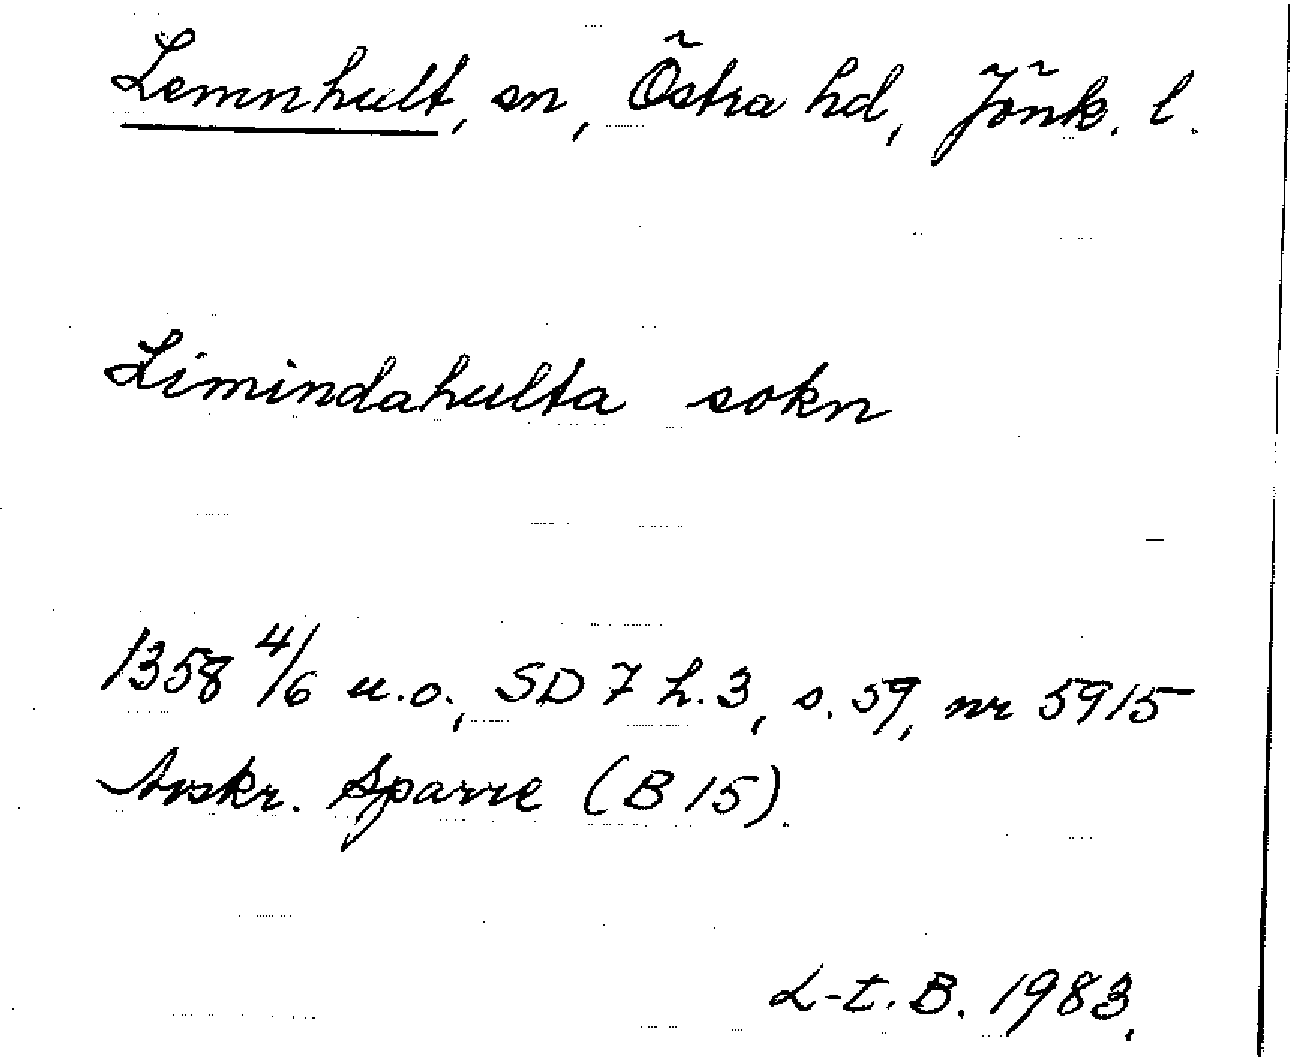 Lemnhult, sn, Östra hd, Jönk. l.
Limindahulta sokn
1358 4/6 u.o., SD 7 h.3, s. 59, nr 5915
Avskr. Sparre (B 15).
L-t. B. 1983.